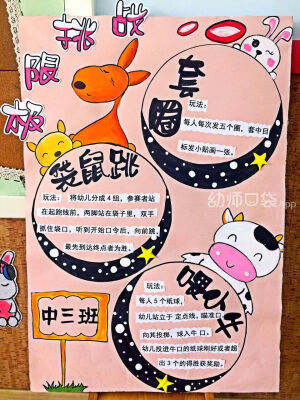 挑战
极限
套圈
玩法：
每人每次发五个圈，套中目
标发小贴画一张。
袋鼠跳
玩法：
将幼儿分成 4 组，参赛者站
在起跑线前，两脚站在袋子里，双手
抓住袋口，听到开始口令后，向前跳，
最先到达终点者为胜。
喂小牛
玩法：
每人 5 个纸球，
幼儿站立于 定点线，瞄准口
向其投掷，球入牛 口。
幼儿投进牛口的纸球刚好或者超
出 3 个的得胜获奖励。
中三班
幼师口袋.app